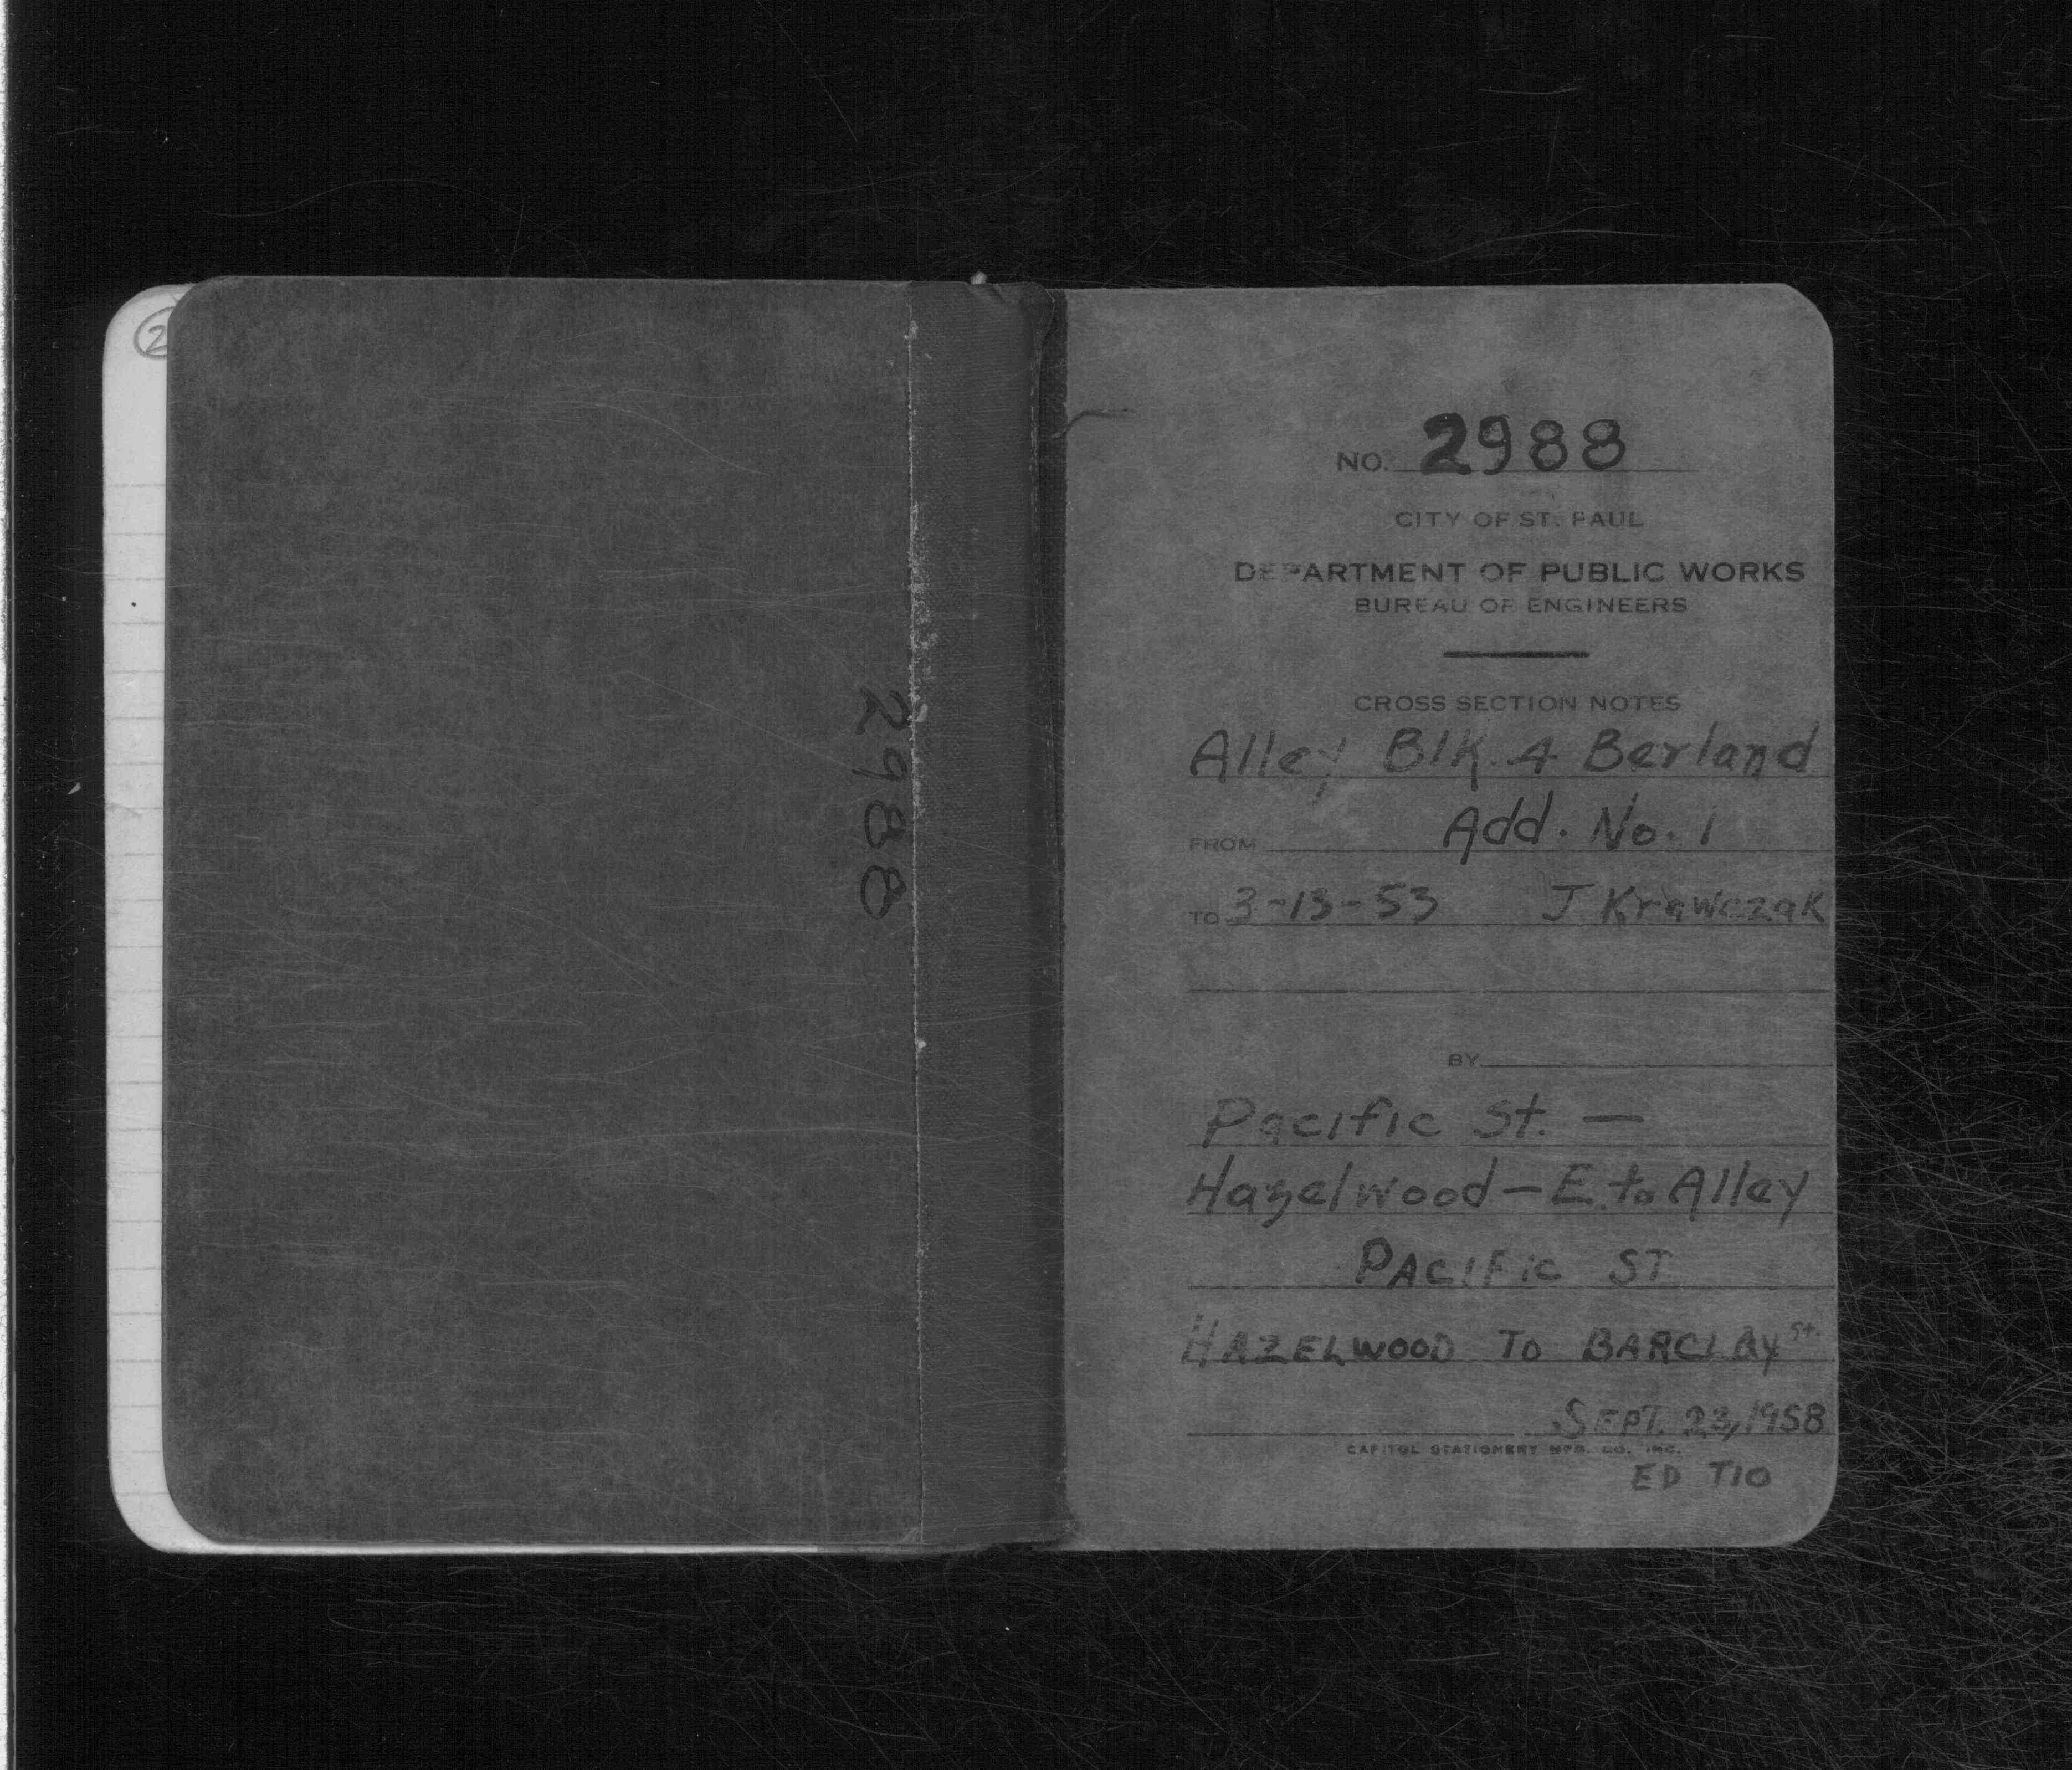 2
2988
NO. 2988
CITY OF ST. PAUL
DEPARTMENT OF PUBLIC WORKS
BUREAU OF ENGINEERS
CROSS SECTION NOTES
Alley Blk 4 Berland
FROM Add. No. 1
TO 3-13-53 J Krawczak
BY
Pacific St. —
Hazelwood - E. to Alley
PACIFIC ST
HAZELWOOD TO BARCLAY St.
SEPT. 23, 1958
CAPITOL STATIONERY MFG. CO. INC.
ED TIO